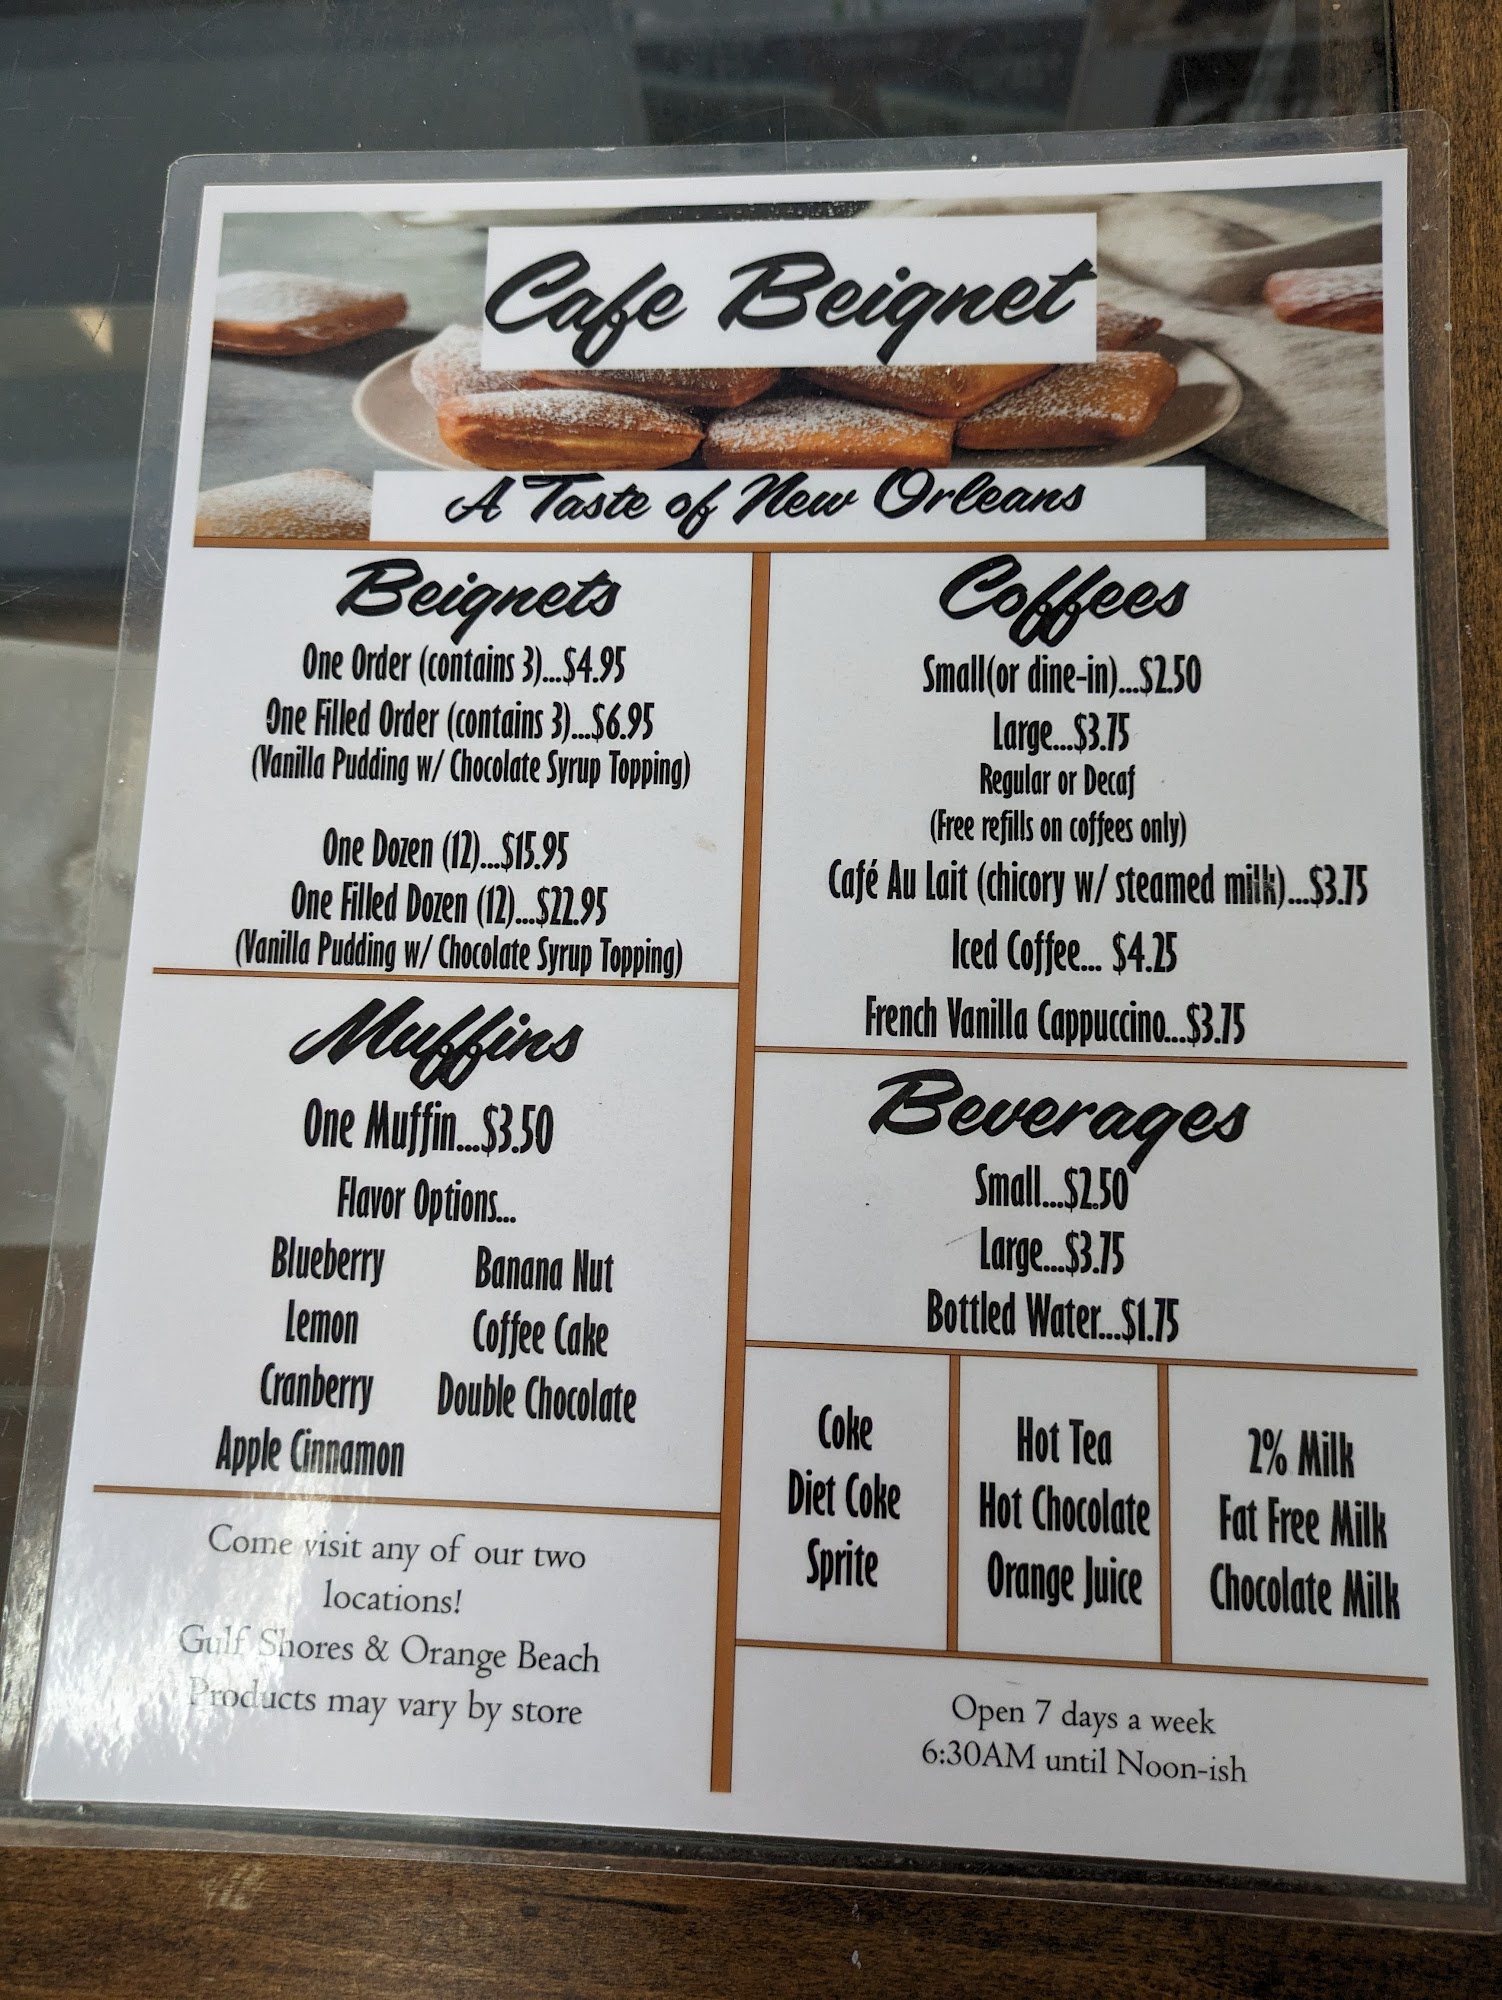 Cafe Beignet
A Taste of New Orleans
Beignets
One Order (contains 3)...$4.95
One Filled Order (contains 3)...$6.95
(Vanilla Pudding w/ Chocolate Syrup Topping)
One Dozen (12)...$15.95
One Filled Dozen (12)...$22.95
(Vanilla Pudding w/ Chocolate Syrup Topping)
Muffins
One Muffin...$3.50
Flavor Options...
Blueberry Banana Nut
Lemon Coffee Cake
Cranberry Double Chocolate
Apple Cinnamon
Come visit any of our two
locations!
Gulf Shores & Orange Beach
Products may vary by store
Coffees
Small(or dine-in)...$2.50
Large...$3.75
Regular or Decaf
(Free refills on coffees only)
Café Au Lait (chicory w/ steamed milk)...$3.75
Iced Coffee... $4.25
French Vanilla Cappuccino...$3.75
Beverages
Small...$2.50
Large...$3.75
Bottled Water...$1.75
Coke
Diet Coke
Sprite
Hot Tea
Hot Chocolate
Orange Juice
2% Milk
Fat Free Milk
Chocolate Milk
Open 7 days a week
6:30AM until Noon-ish